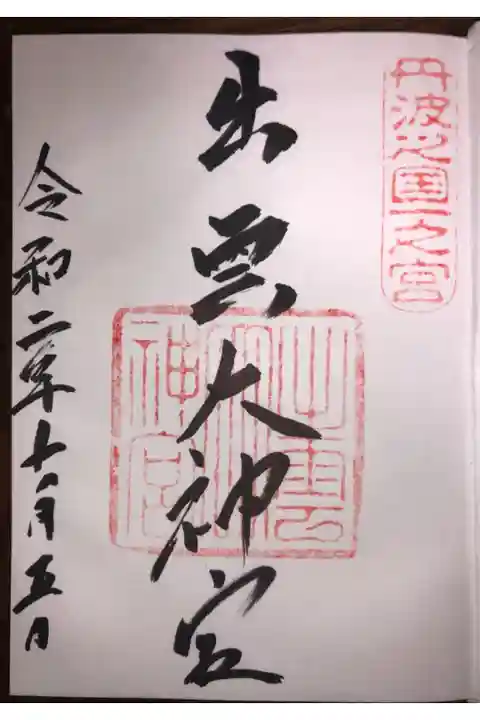 丹波之国一之宮
出雲大神宮
出雲大神宮
令和二年十月五日